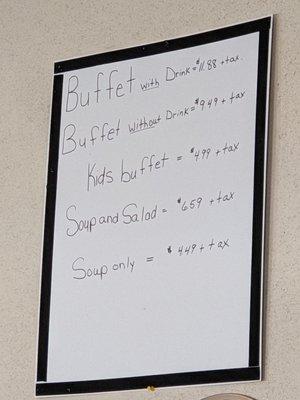 Buffet with Drink = $11.88 + tax.
Buffet without Drink = $949 + tax
Kids buffet = $499 + tax
Soup and Salad = $659 + tax
Soup only = $449 + tax